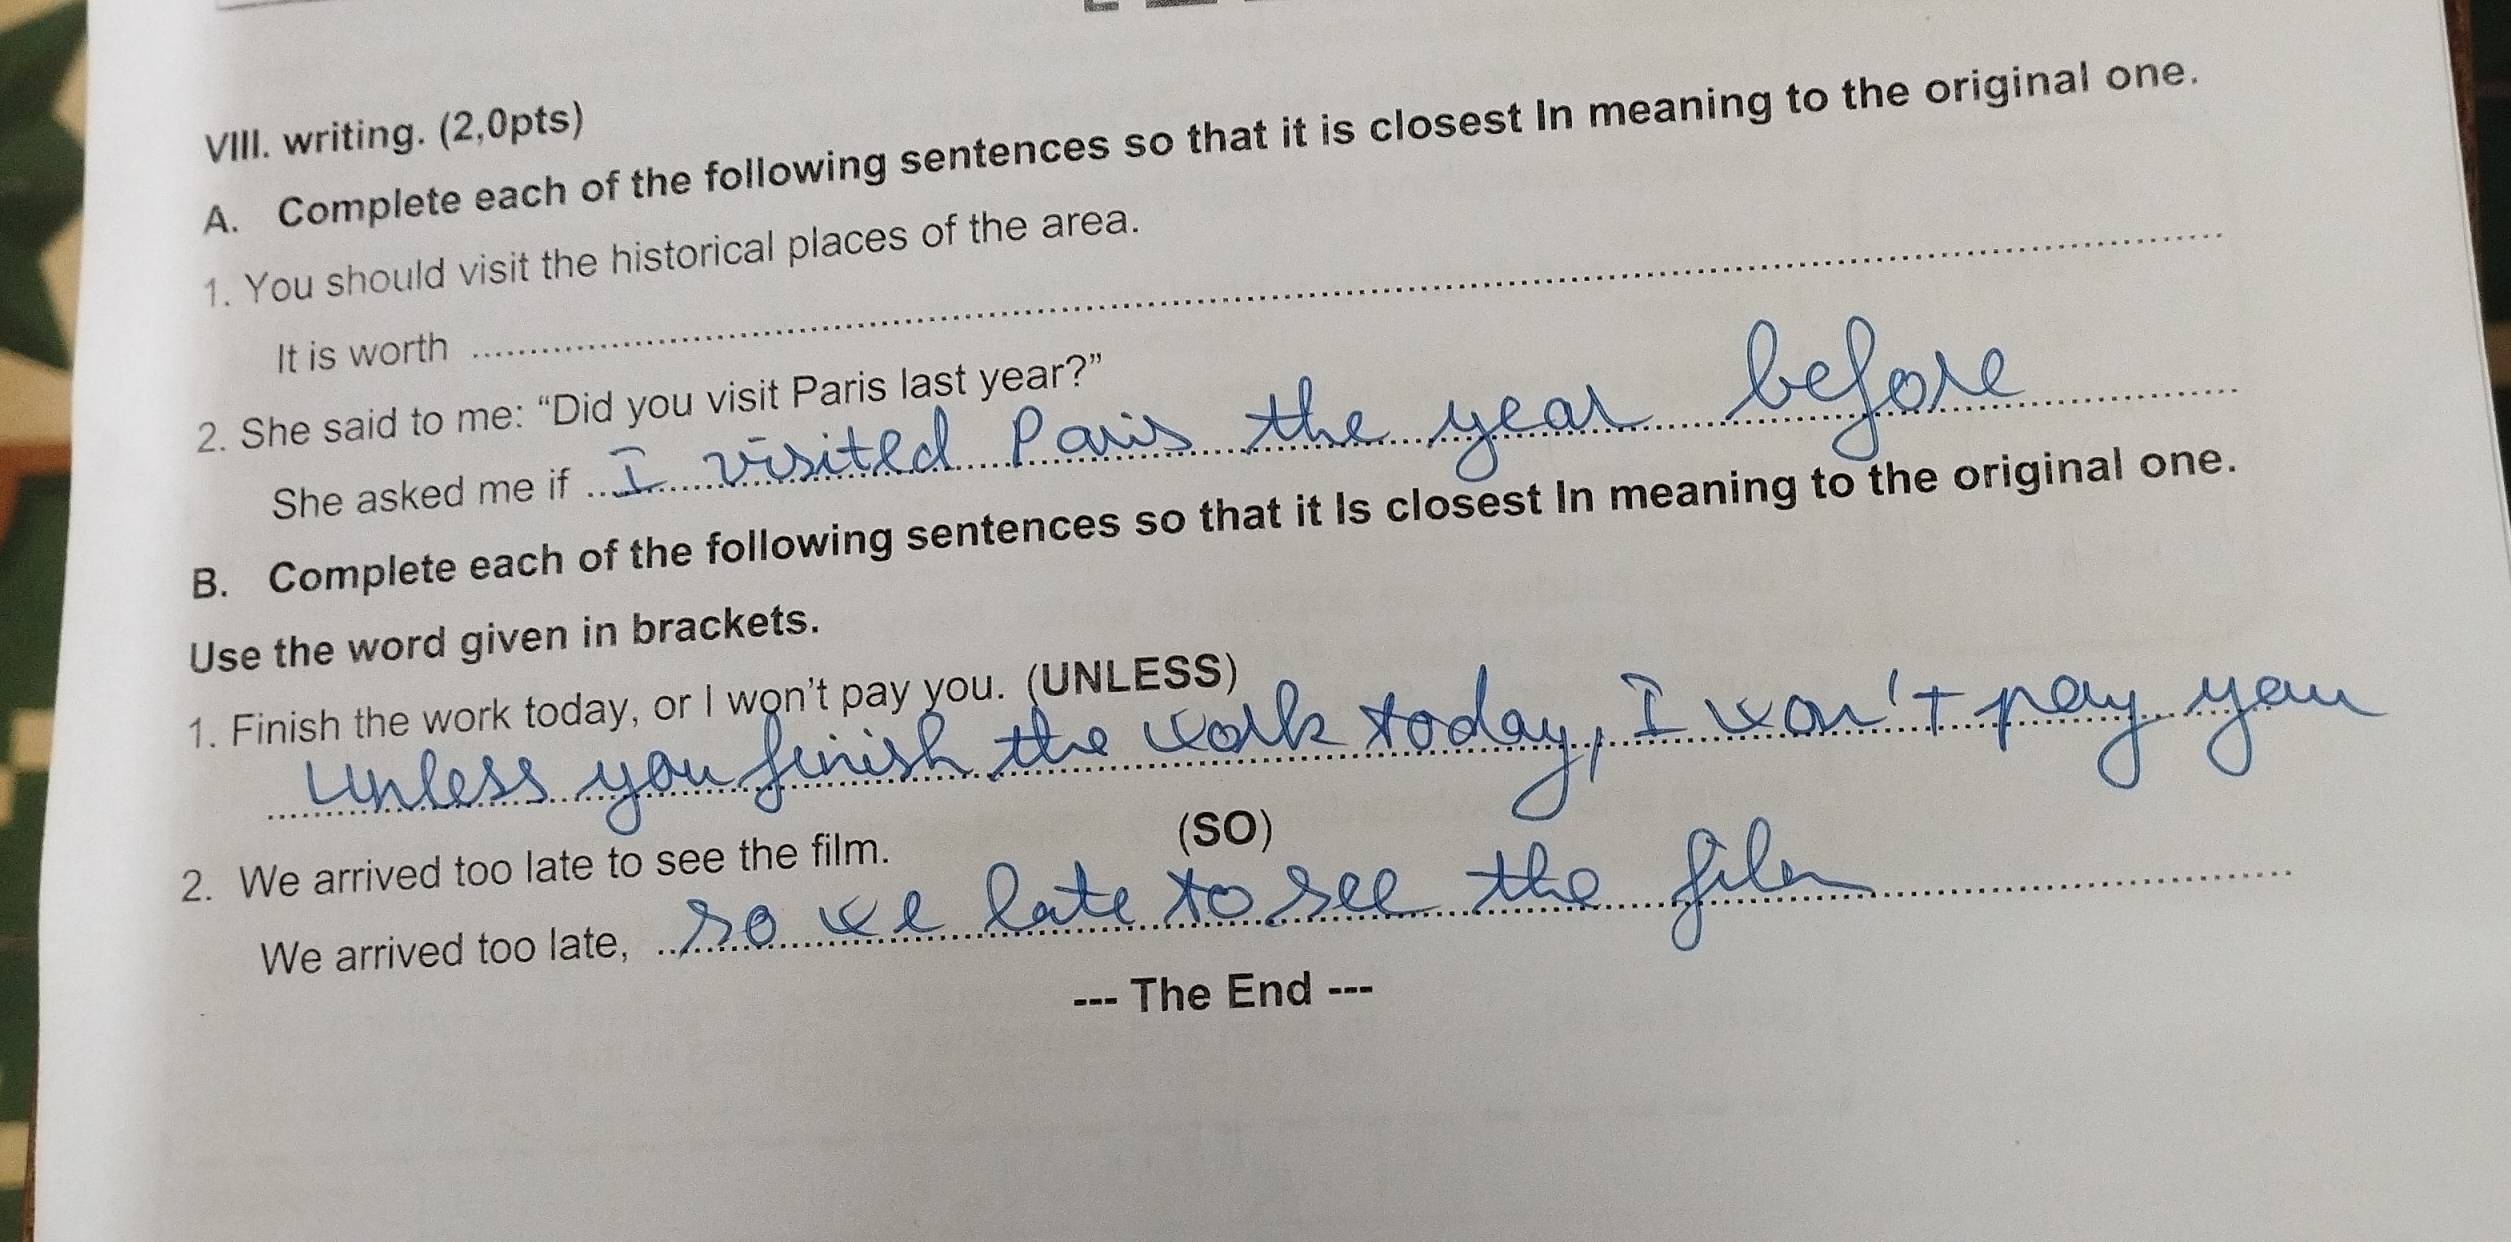 VIII. writing. (2,0pts)
A. Complete each of the following sentences so that it is closest In meaning to the original one.
1. You should visit the historical places of the area.
It is worth ....................
2. She said to me: “Did you visit Paris last year?”
She asked me if I visited Paris the year before
B. Complete each of the following sentences so that it Is closest In meaning to the original one.
Use the word given in brackets.
1. Finish the work today, or I won't pay you. (UNLESS)
Unless you finish the work today, I won't pay you
2. We arrived too late to see the film. (SO)
We arrived too late, so we late to see the film
--- The End ---